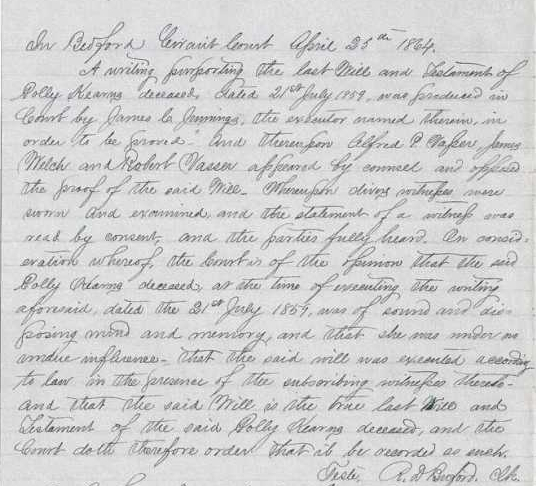 In Bedford Circuit Court April 25th 1864.
A writing purporting the last Will and Testament of
Polly Kearns deceased, dated 21st July 1859, was produced in
Court by James C Jennings, the executor named therein, in
order to be proved. And thereupon Alfred P. Vasser, James
Welch and Robert Vasser appeared by counsel and opposed
the proof of the said Will. Whereupon divers witnesses were
sworn and examined, and the statement of a witness was
read by consent, and the parties fully heard. On consid-
eration whereof, the Court is of the opinion that the said
Polly Kearns deceased, at the time of executing the writing
aforesaid, dated the 21st July 1859, was of sound and dis-
posing mind and memory, and that she was under no
undue influence - that the said will was executed according
to law in the presence of the subscribing witnesses thereto -
and that the said Will, is the true last Will and
Testament of the said Polly Kearns deceased, and the
Court doth therefore order that it be recorded as such.
Teste, R. D. Buford, Clk.